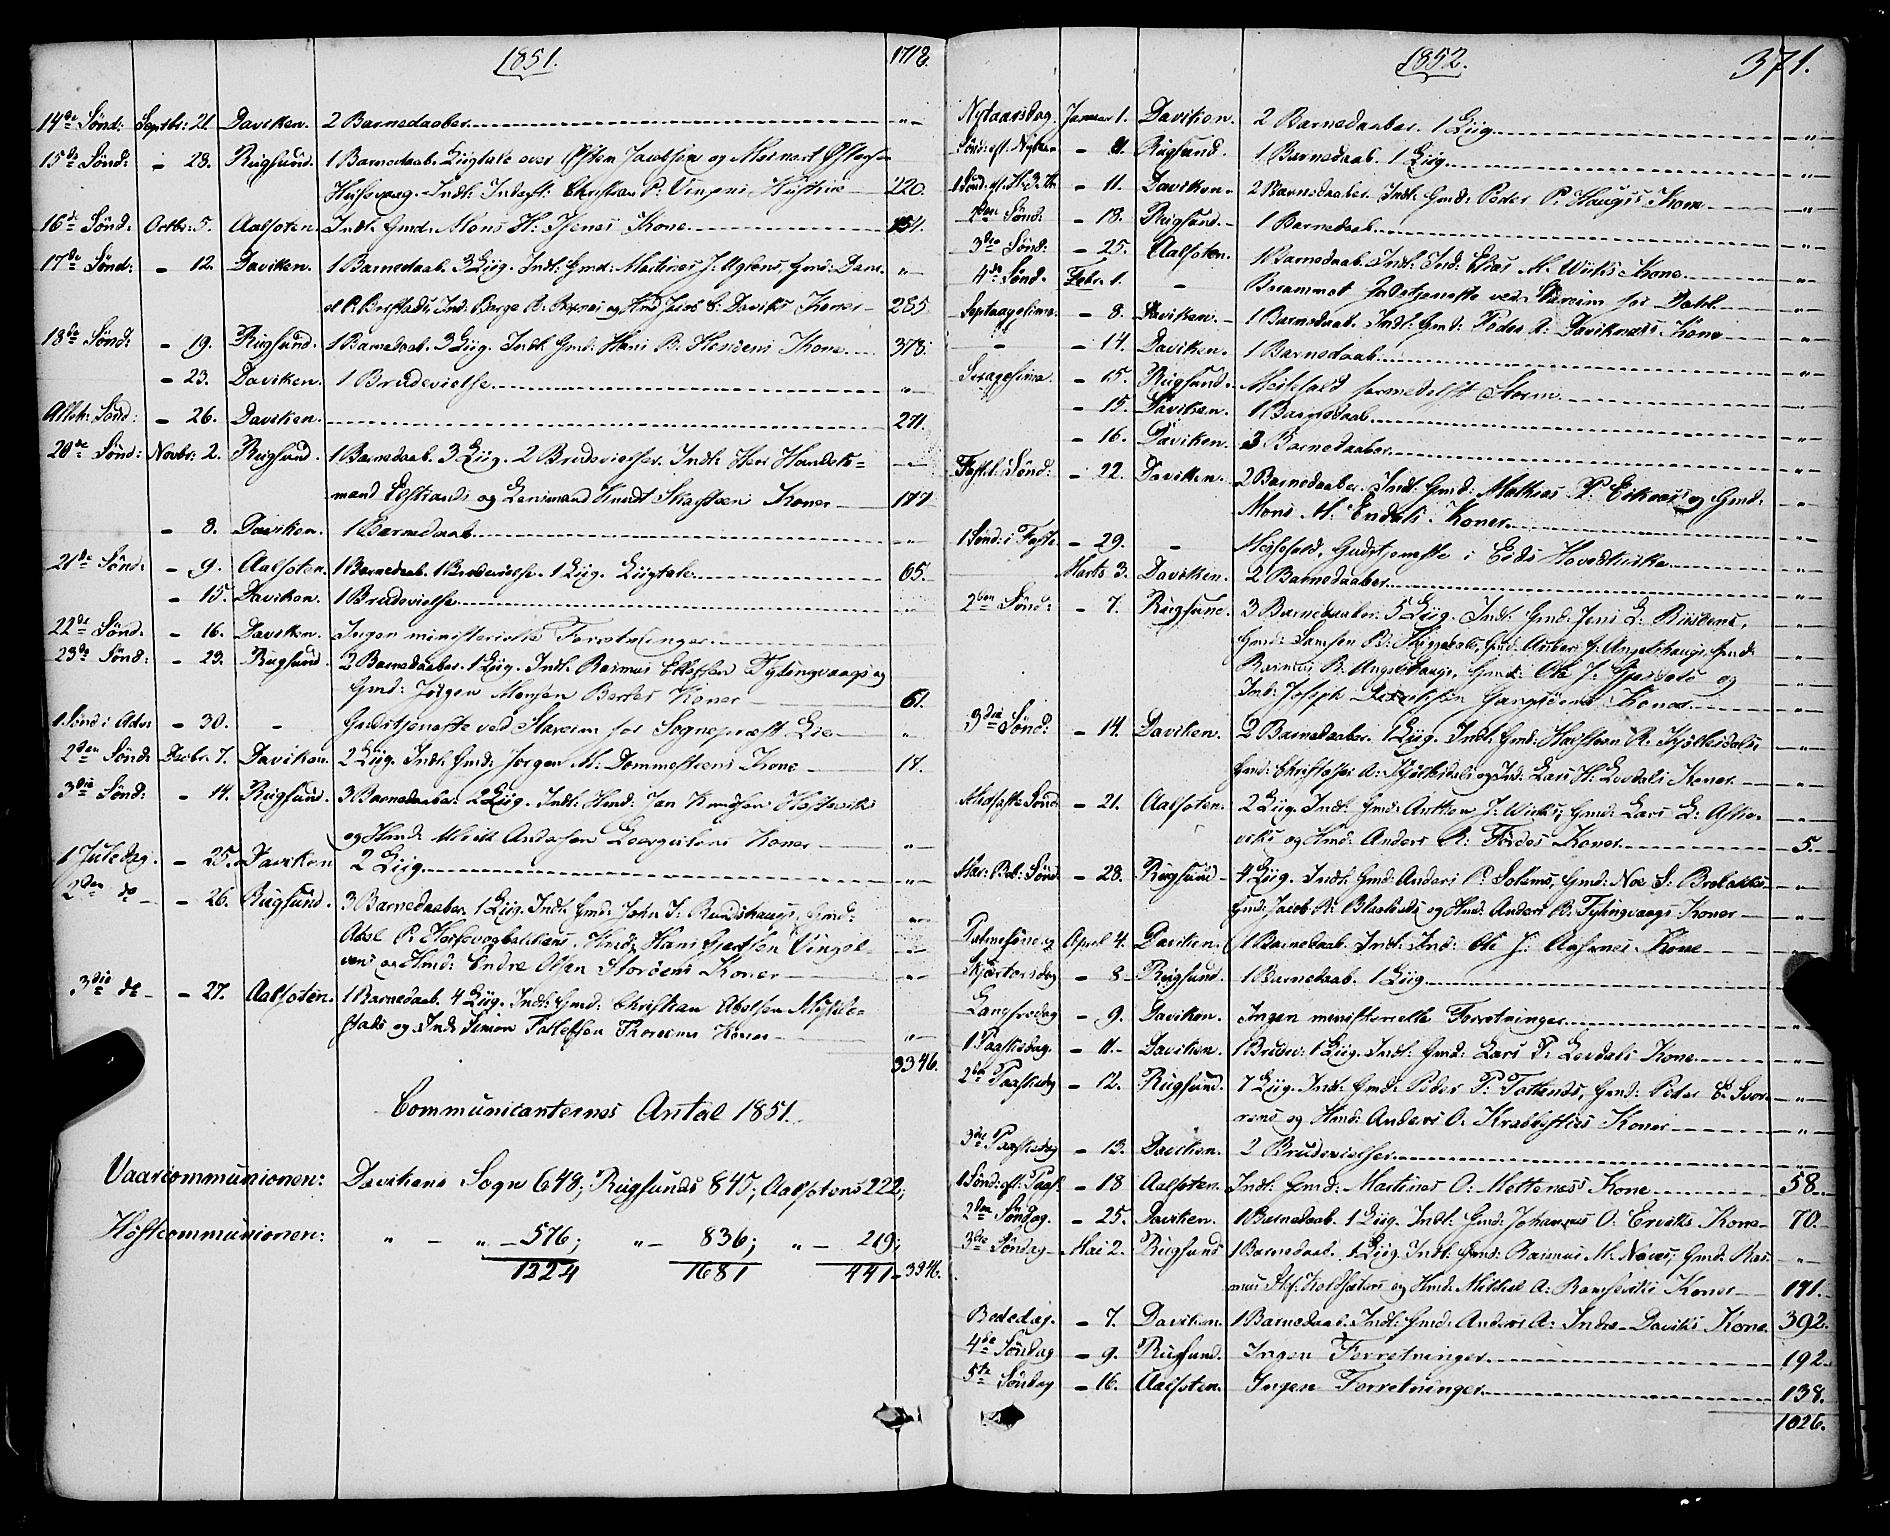 1851. 1718.
14de Sønd: Septbr: 21 Daviken. 2 Barnedaaber. „
15de Sønd: - 28. Rugsund. 1 Barnedaab. Liigtale over Østen Jacobsen og Meinert
Indl: Christian P. 220.
16de Sønd: Octbr: 5. Aalfoten. Indl: Gmd: Mons H. Kone 154.
17de Sønd: - 12. Daviken. 1 Barnedaab. 3 Liig. Indl: Gmd: Martines J. Gmd: Dani- „
el P. Ind: Børge og Hmd Jacob Daviks Koner 285
18de Sønd: - 19. Rugsund. 1 Barnedaab. 3 Liig. Indl: Gmd: Hans R. Kone 378.
- 23. Daviken. 1 Brudevielse „
Alleh: Sønd: - 26. Daviken. 271.
20de Sønd: Novbr: 2. Rugsund. 1 Barnedaab. 3 Liig. 2 Brudevielser. Indl: Herr Handels- „
mand og Lensmand Knudt Koner 177
- 8. Daviken. 1 Barnedaab „
21de Sønd: - 9. Aalfoten. 1 Barnedaab. 1 Brudevielse. 1 Liig. Liigtale 65.
- 15. Daviken. 1 Brudevielse „
22de Sønd: - 16. Daviken. Ingen ministerielle Forretninger.
23de Sønd: - 23. Rugsund. 2 Barnedaaber. 1 Liig. Indl: Rasmus og
Gmd: Jørgen Monsen Koner 61.
1 Sønd: i Adv: - 30. - Gudstjeneste ved Starem for Sognepræst Lie „
2den Sønd: Decbr. 7. Daviken. 2 Liig. Indl: Gmd: Jørgen M. Dommesteens Kone 17.
3die Sønd: - 14. Rugsund. 3 Barnedaaber. 2 Liig. Indl: Hmd: Jan Knudsen
og Hmd: Andersen Koner „
1 Juledag. - 25. Daviken 2 Liig. „
2den do - - 26. Rugsund. 3 Barnedaaber. 1 Liig. Indl: Gmd: John J. Rundehaugs, Gmd: „
Abel P. Hmd: Hans „
og Hmd: Endre Olsen Storøens Koner „
3die do - - 27. Aalfoten. 1 Barnedaab. 4 Liig. Indl: Gmd: Christian Abelsen
og Ind: Simon Koner „
3346.
Communicanternes Antal 1851.
Vaarcommunionen: Davikens Sogn 648; Rugsunds 845; Aalfotens 222;
Høstcommunionen: „ - „ - 576; „ - 836; „ - 219;
1224 1681 441 - 3346.
1852. 371.
Nytaarsdag. Januar 1. Daviken. 2 Barnedaaber. 1 Liig. „
Sønd: ef. Nytaar - 4. Rugsund. 1 Barnedaab. 1 Liig. „
1 Sønd: ef. H. 3 K. - 11. Daviken. 2 Barnedaaber. Indl: Gmd: Peder P. Haugs Kone „
2den Sønd: - 18. Rugsund. 1 Barnedaab „
3die Sønd: - 25. Aalfoten. 1 Barnedaab. Indl: Ind: Elias M. Kone „
4de Sønd. Febr. 1. - Berammet Gudstjeneste ved Stareim for „
Septuagesima. - 8. Daviken. 1 Barnedaab. Indl: Gmd: Peder A. Daviknæs Kone „
- - 14. Daviken. 1 Barnedaab „
Sexagesima. - 15. Rugsund. Messefald formedelst Storm „
- 15. Daviken. 1 Barnedaab „
- 16. Daviken. 3 Barnedaaber „
Fastel: Sønd: - 22. Daviken. 2 Barnedaaber. Indl: Gmd: Mathias P. og Gmd:
Mons M. Endals Koner. „
1 Sønd: i Faste - 29. - Messefald. Gudstjeneste i Eids Hovedkirke „
Marts 3. Daviken. 2 Barnedaaber. „
2den Sønd: - 7. Rugsund. 3 Barnedaaber. 5 Liig. Indl: Gmd: Jens L.
Gmd: Samson Gmd: Anders Angelshaugs Gmd: „
Rasmus R. Angelshaugs, Gmd: Ole J. og „
Ind: Joseph Koner „
3die Sønd: - 14. Daviken. 2 Barnedaaber. 1 Liig. Indl: Gmd: Halsteen R. Kjøllesdals „
Gmd: Christopher A. Kjøllesdals og Ind: Lars H. Levdals Koner. „
Midfaste Sønd: - 21. Aalfoten. 2 Liig. Indl: Gmd: Anthon J. Gmd: Lars L.
viks og Hmd: Anders A. Førdes Koner 5.
Mar: Beb: Sønd: - 28. Rugsund. 4 Liig. Indl: Gmd: Anders P. Gmd: Noe S. „
Gmd: Jacob R. og Hmd: Anders B. Tytingvaags Koner „
Palmesøndag April 4. Daviken. 1 Barnedaab. Indl: Ind: Ole J. Kone „
Skjærtorsdag - 8 Rugsund. 1 Barnedaab. 1 Liig.
Langfredag - 9. Daviken. Ingen ministerielle Forretninger.
1 Paaskedag. - 11. Daviken. 1 Brudev: 1 Liig. Indl: Gmd: Lars P. Levdals Kone „
2den Paaskedag - 12. Rugsund. 7 Liig. Indl: Gmd: Peder P. Totlands, Gmd: Peder E. „
og Hmd: Anders O. Krabbesties Koner „
3die Paaskedag - 13. Daviken. 2 Brudevielser. „
1 Sønd: ef. Paas: - 18 Aalfoten. Indl: Gmd: Martines O. Mettenes Kone 58.
2den Søndag. - 25. Daviken. 1 Barnedaab. 1 Liig. Indl: Gmd: Johannes O. Erviks Kone 70.
3die Søndag - Mai 2. Rugsund 1 Barnedaab. 1 Liig. Indl: Gmd: Rasmus M. Gmd: Ras- „
mus og Hmd: Mikkel A. Koner 171.
Bededag. - 7. Daviken. 1 Barnedaab. Indl: Gmd: Anders A. Indre-Daviks Kone. 392.
4de Søndag - 9. Rugsund. Ingen Forretninger. 192.
5te Søndag - 16. Aalfoten. Ingen Forretninger. 138.
1026.